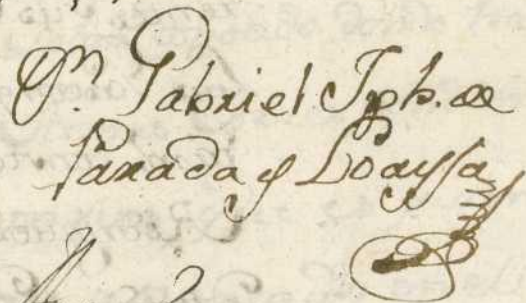 Dn. Gabriel Jph. de
Parada y Loaysa